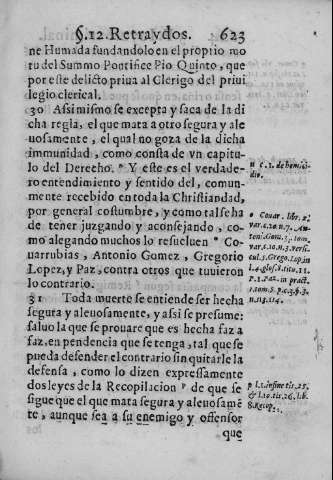 §.12. Retraydos. 623
ne Humada fundandolo en el proprio mo
tu del Summo Pontifice Pio Quinto, que
por este delicto priua al Clerigo del priui
legio clerical.
30 Assi mismo se excepta y saca de la di
cha regla, el que mata a otro segura y ale
uosamente, el qual no goza de la dicha
immunidad, como consta de vn capitu-
lo del Derecho. ⁿ Y este es el verdade-
ro entendimiento y sentido del, comun-
mente recebido en toda la Christiandad,
por general costumbre, y como tal se ha
de tener juzgando y aconsejando, co-
mo alegando muchos lo resueluen º Co-
uarrubias, Antonio Gomez, Gregorio
Lopez, y Paz, contra otros que tuuieron
lo contrario.
31 Toda muerte se entiende ser hecha
segura y aleuosamente, y assi se presume:
saluo la que se prouare que es hecha faz a
faz, en pendencia que se tenga, tal que se
pueda defender el contrario sin quitarle la
defensa, como lo dizen expressamente
dos leyes de la Recopilacion ᵖ de que se
sigue que el que mata segura y aleuosamẽ
te, aunque sea a su enemigo y offensor
que
n c. 1. de homici-
dio.
o Couar. lib. 2.
var. c. 20. n. 7. An-
ton. Gom. 3. tom.
var. c. 10. n. 3. versi.
cul. 3. Greg. Lop. in
l. 4. glos. 8. tit. 11.
P. 1. Paz. in pract.
1. tom. 5. p. c. 3. §. 3.
n. 113. 114.
p l. 1. in fine tit. 23.
& l. 10. tit. 26. lib.
8. Recop.